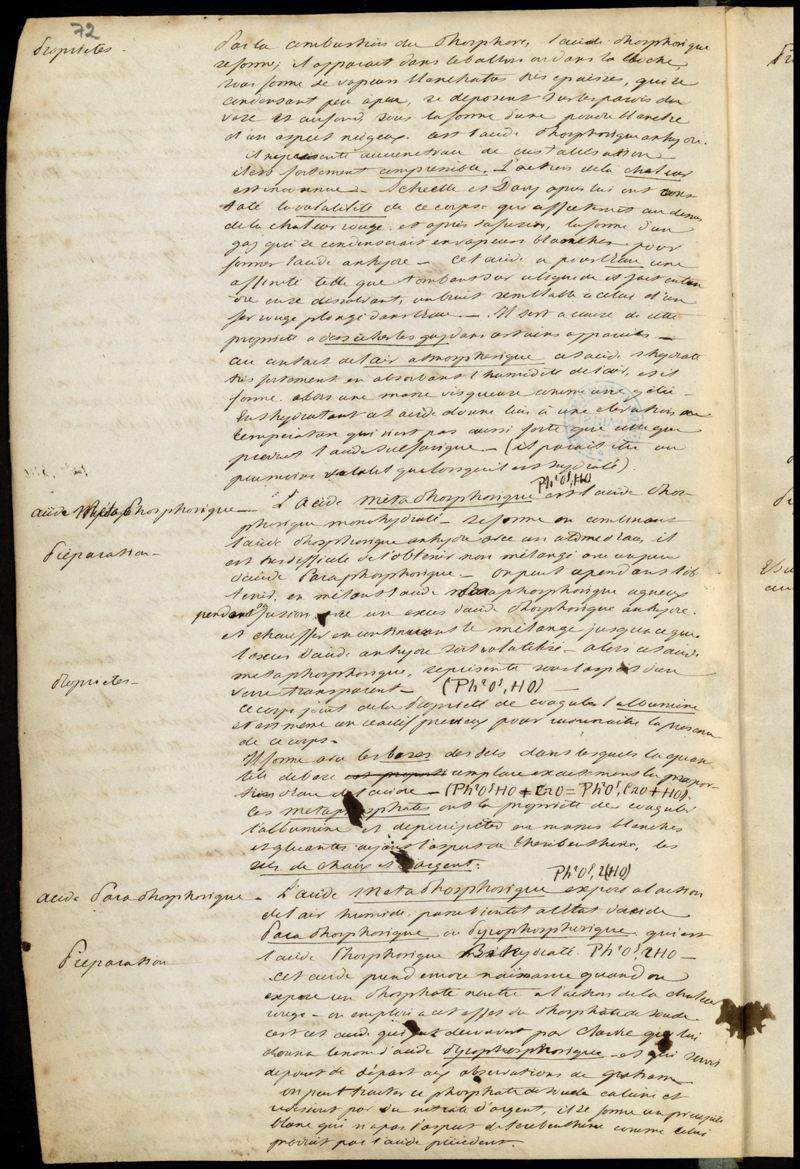 72
Propriétés.
Par la combustion du Phosphore, l'acide Phosphorique
se forme; il apparait dans le ballon ou dans la cloche,
sous forme de vapeurs blanchatres très epaisses, qui se
condensant peu a peu, se deposent sur les parois du
vase et au fond sous la forme d'une poudre blanche
d'un aspect neigeux. c'est l'acide Phosphorique anhydre.
il ne presente aucune trace de cristallisation
il est fortement compressible. L'action de la chaleur
est inconnue. Scheelle et Davy apres lui ont cons-
taté la volatilité de ce corps qui affecterait au dessus
de la chaleur rouge et après sa fusion, la forme d'un
gaz qui se condenserait en vapeurs blanches pour
former l'acide anhydre — cet acide a pour l'eau une
affinité telle que tombant sur ce liquide il fait enten
dre en se dissolvant, un bruit semblable à celui d'un
fer rouge plongé dans l'eau. — Il sert a cause de cette
propriété a dessécher les gaz dans certains appareils —
au contact de l'air atmospherique cet acide s'hydrate
très fortement en absorbant l'humidité de l'air, et il
forme alors une masse visqueuse comme une gelée —
En s'hydratant cet acide donne lieu à une elevation de
temperature qui n'est pas aussi forte que celle que
produit l'acide sulfurique — (il parait être un
peu moins volatil que lorsqu'il est hydraté).
Ph²O⁵,HO
acide Méta Phosphorique — L'acide métaphosphorique est l'acide Phos-
phorique monohydraté — se forme en combinant
Préparation —
l'acide Phosphorique anhydre avec un atome d'eau, il
est très difficile de l'obtenir non mélangé avec un peu
d'acide Paraphosphorique. — On peut cependant l'ob
tenir, en mêlant l'acide paraphosphorique aqueux
pendant fusion, avec un exces d'acide Phosphorique anhydre.
et chauffer en continuant le mélange jusqu'a ce que
l'exces d'acide anhydre soit volatilisé — alors cet acide
metaphosphorique, represente sous l'aspect d'un
Propriétés —
verre transparent — (Ph²O⁵, HO) —
ce corps jouit de la Propriété de coaguler l'albumine
et est même un reactif precieux pour reconnaitre la presence
de ce corps —
Il forme avec les bases des sels dans lesquels la quan
tité de base est proport emplace exactement la propor-
tion d'eau de l'acide — (Ph²O⁵HO + CaO = Ph²O⁵, CaO + HO).
Ces metaphosphates ont la propriété de coaguler
l'albumine et de precipiter en masses blanches
et gluantes ayant l'aspect de Therebenthine, les
sels de chaux et d'argent.
Ph²O⁵,2(HO)
acide Paraphosphorique — L'acide Metaphosphorique exposé a l'action
de l'air humide passe bientot a l'état d'acide
Paraphosphorique ou Pyrophosphorique qui est
Préparation
l'acide Phosphorique Bihydraté. Ph²O⁵,2HO —
cet acide prend encore naissance quand on
expose un Phosphate neutre a l'action de la chaleur
rouge — on emploie a cet effet du Phosphate de soude
c'est cet acide qui fut decouvert par Clarke qui lui
donna le nom d'acide Pyrophosphorique — et qui servit
de point de départ aux observations de Graham
on peut traiter ce phosphate de soude calciné et
redissout par du nitrate d'argent, il se forme un precipité
blanc qui n'a pas l'aspect de terebenthine comme celui
produit par l'acide précédent.